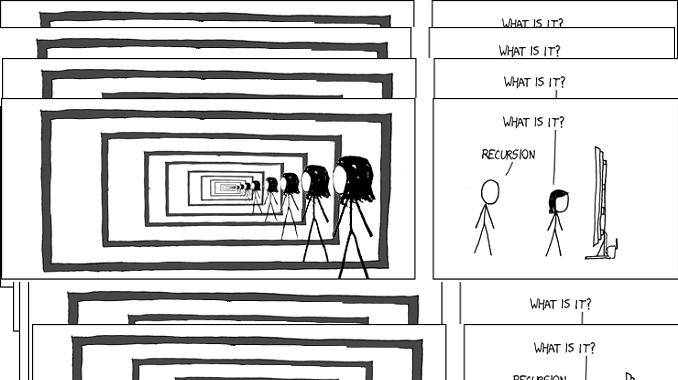 WHAT IS IT?
WHAT IS IT?
WHAT IS IT?
WHAT IS IT?
RECURSION
WHAT IS IT?
WHAT IS IT?
RECURSION